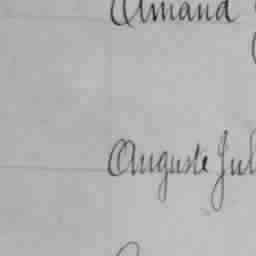 Amand
Auguste Jul